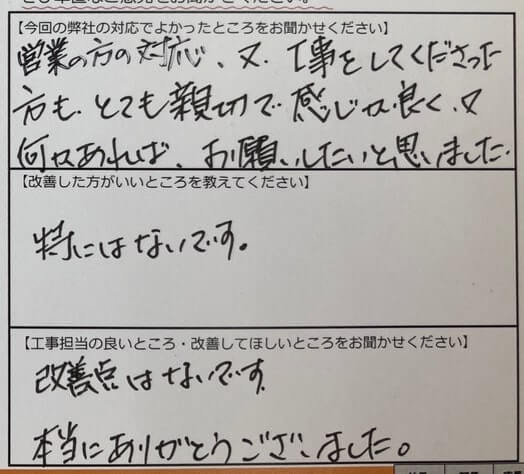 【今回の弊社の対応でよかったところをお聞かせください】
営業の方の対応、又、工事をしてくださった
方も、とても親切で感じが良く、又
何かあれば、お願いしたいと思いました。
【改善した方がいいところを教えてください】
特にはないです。
【工事担当の良いところ・改善してほしいところをお聞かせください】
改善点はないです。
本当にありがとうございました。